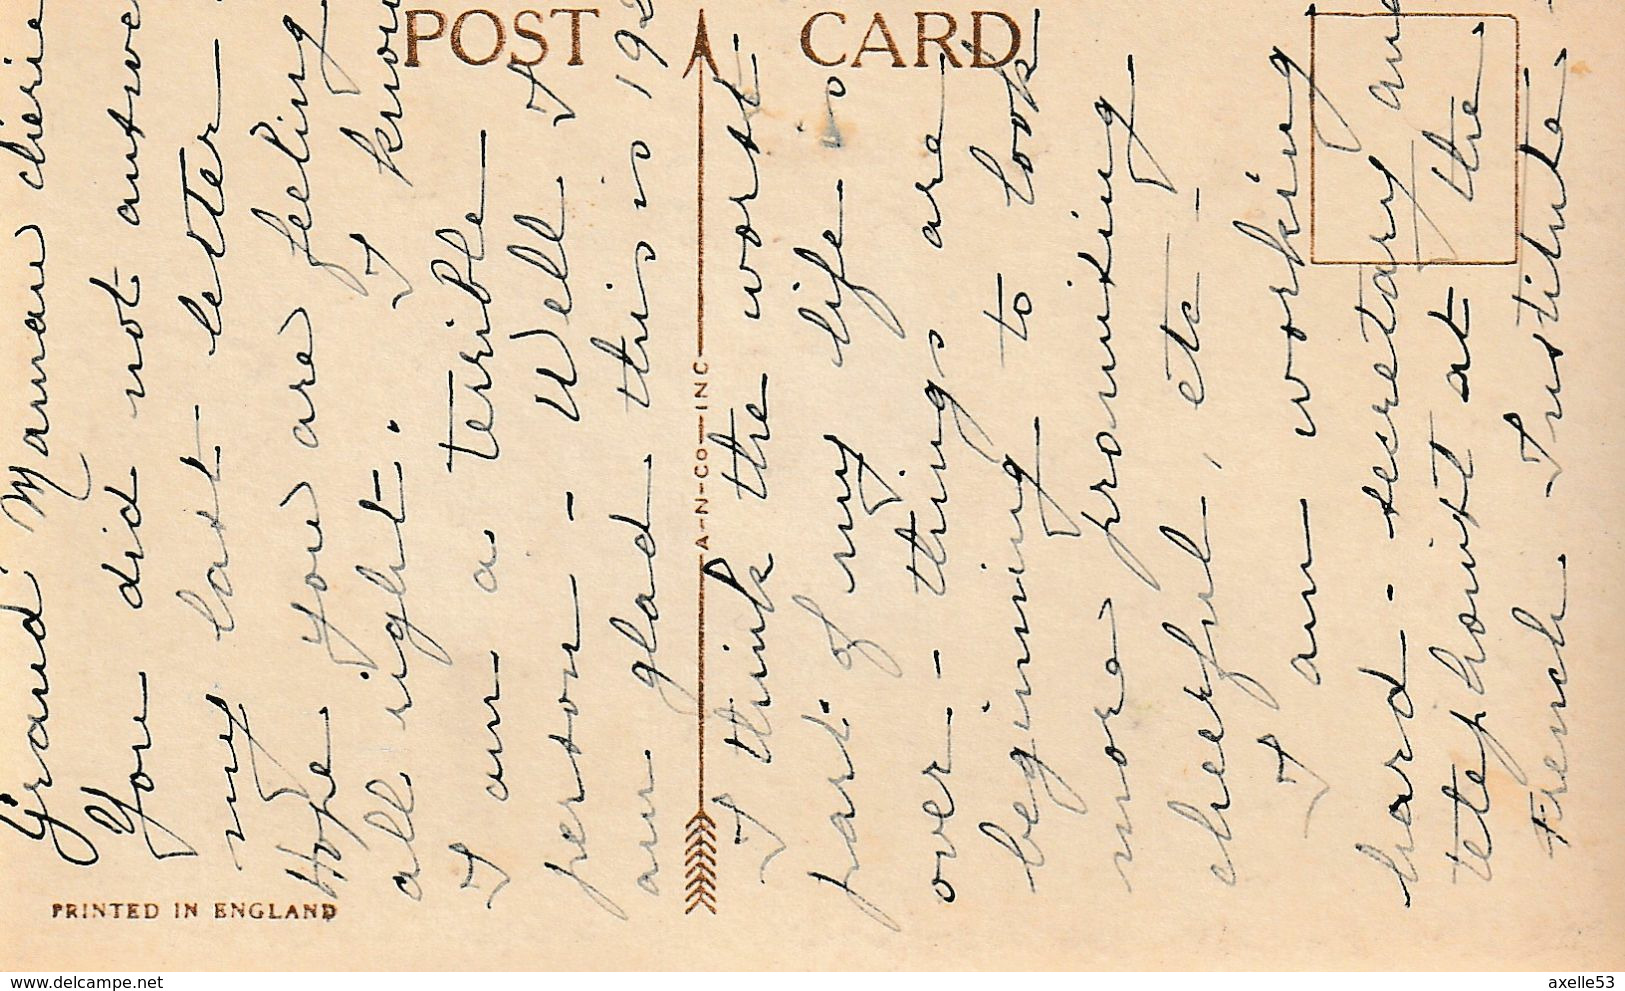 POST CARD
Grand Maman chérie
You did not answe
my last letter -
Hope you are feeling
all right. I know
I am a terrible
person - Well I
am glad this is 192
I think the worst
part of my life is
over - things are
beginning to look
more promising
cheerful, etc -
I am working
hard - secretary and
telephonist at the
French Institute -
A-N-Co-INC
PRINTED IN ENGLAND
www.delcampe.net
axelle53